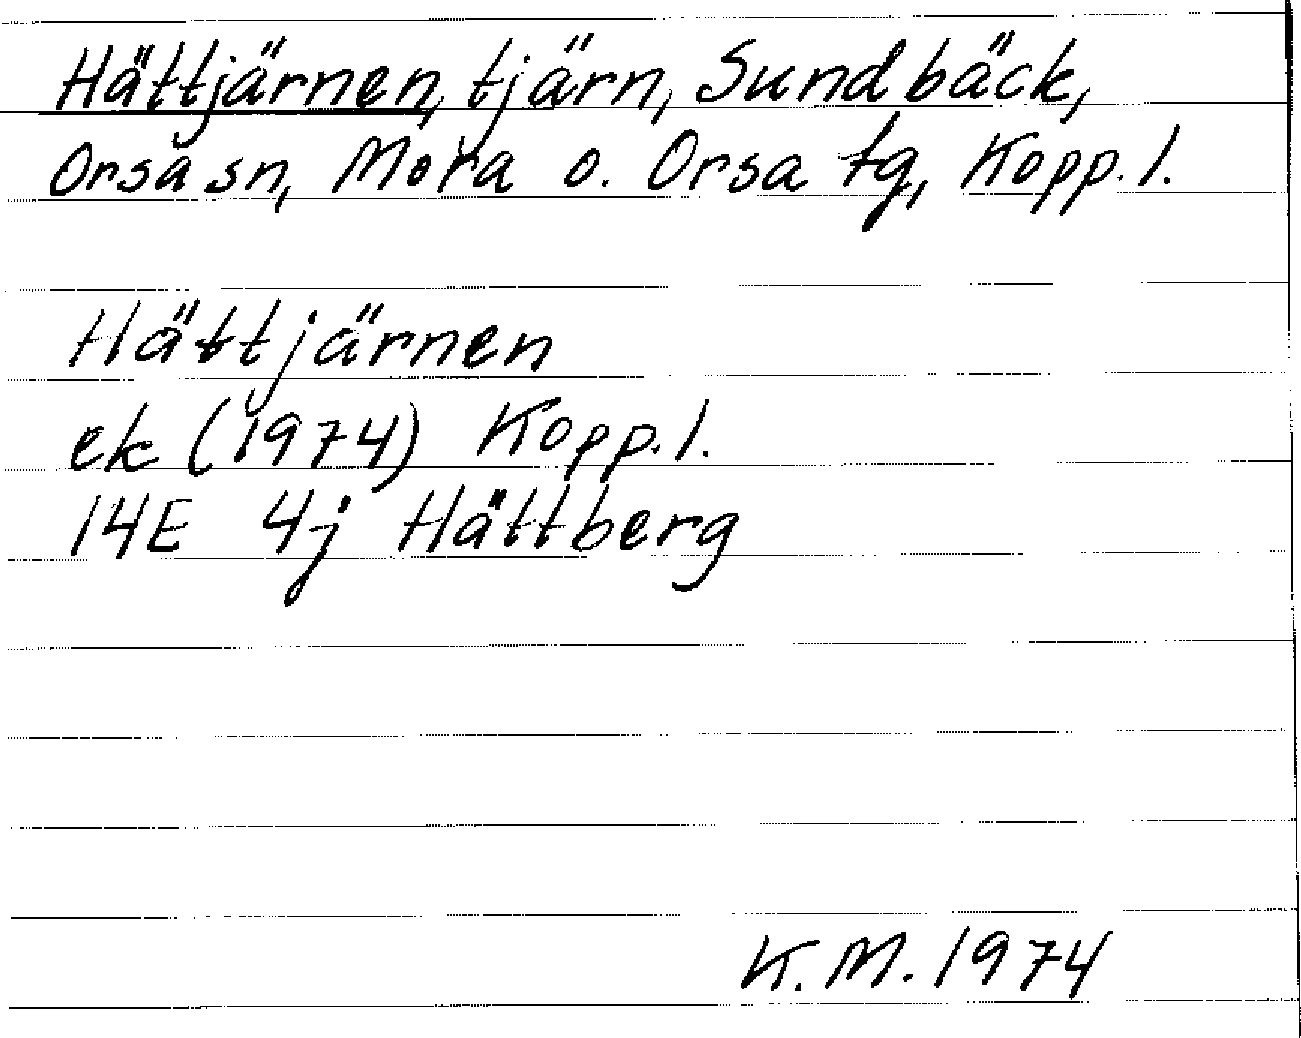 Hättjärnen, tjärn, Sundbäck,
Orsa sn, Mora o. Orsa tg, Kopp. l.
Hättjärnen
ek (1974) Kopp. l.
14E 4j Hättberg
K. M. 1974